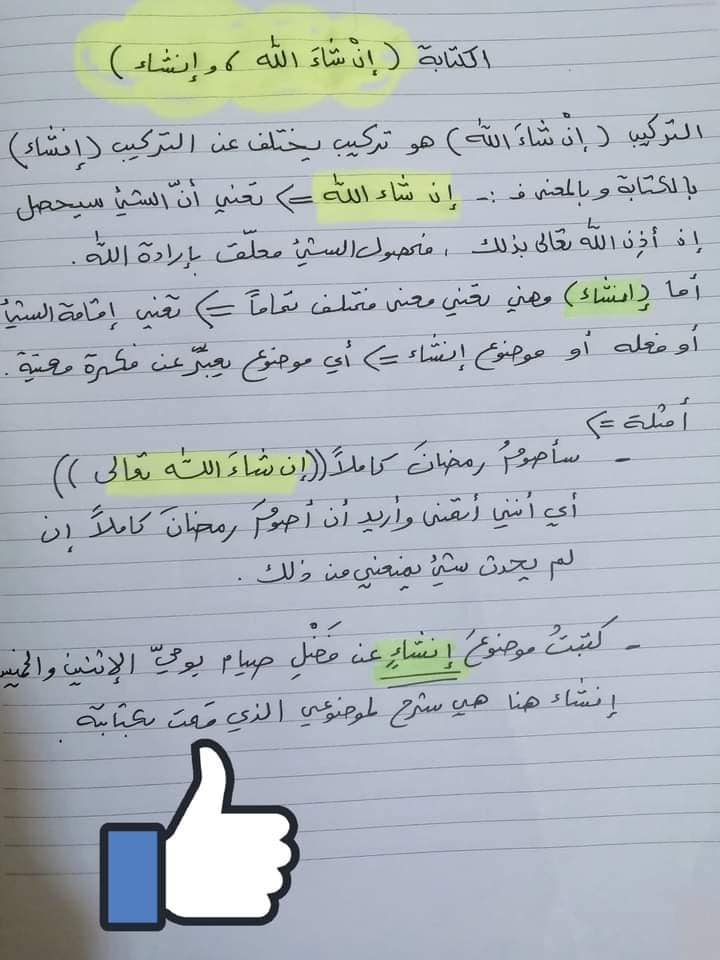 الكتابة ( إنْ شَاءَ الله ، و إنشاء )
التركيب ( إنْ شَاءَ اللهُ ) هو تركيب يختلف عن التركيب ( إنشاء )
بالكتابة وبالمعنى فـ :- إن شاء اللهُ => تعني أنّ الشيءَ سيحصل
إن أذِن اللهُ تعالى بذلك ، فحصول الشيءِ معلّقٌ بإرادة الله .
أما (إنشاء) وهي تعني معنى مختلف تماماً => تعني إقامة الشيءِ
أو فعله أو موضوع إنشاء => أي موضوع يعبّرُ عن فكرة معيّنة .
أمثلة =>
- سأصومُ رمضانَ كاملاً ((إن شاءَ الله تعالى ))
أي أنني أتمنى وأريد أن أصومَ رمضانَ كاملاً إن
لم يحدث شيءٌ يمنعني من ذلك .
- كتبتُ موضوعَ إنشاءٍ عن فَضْلِ صيام يوميّ الإثنين والخميس
إنشاء هنا هي شرح لموضوعي الذي قمت بكتابته .